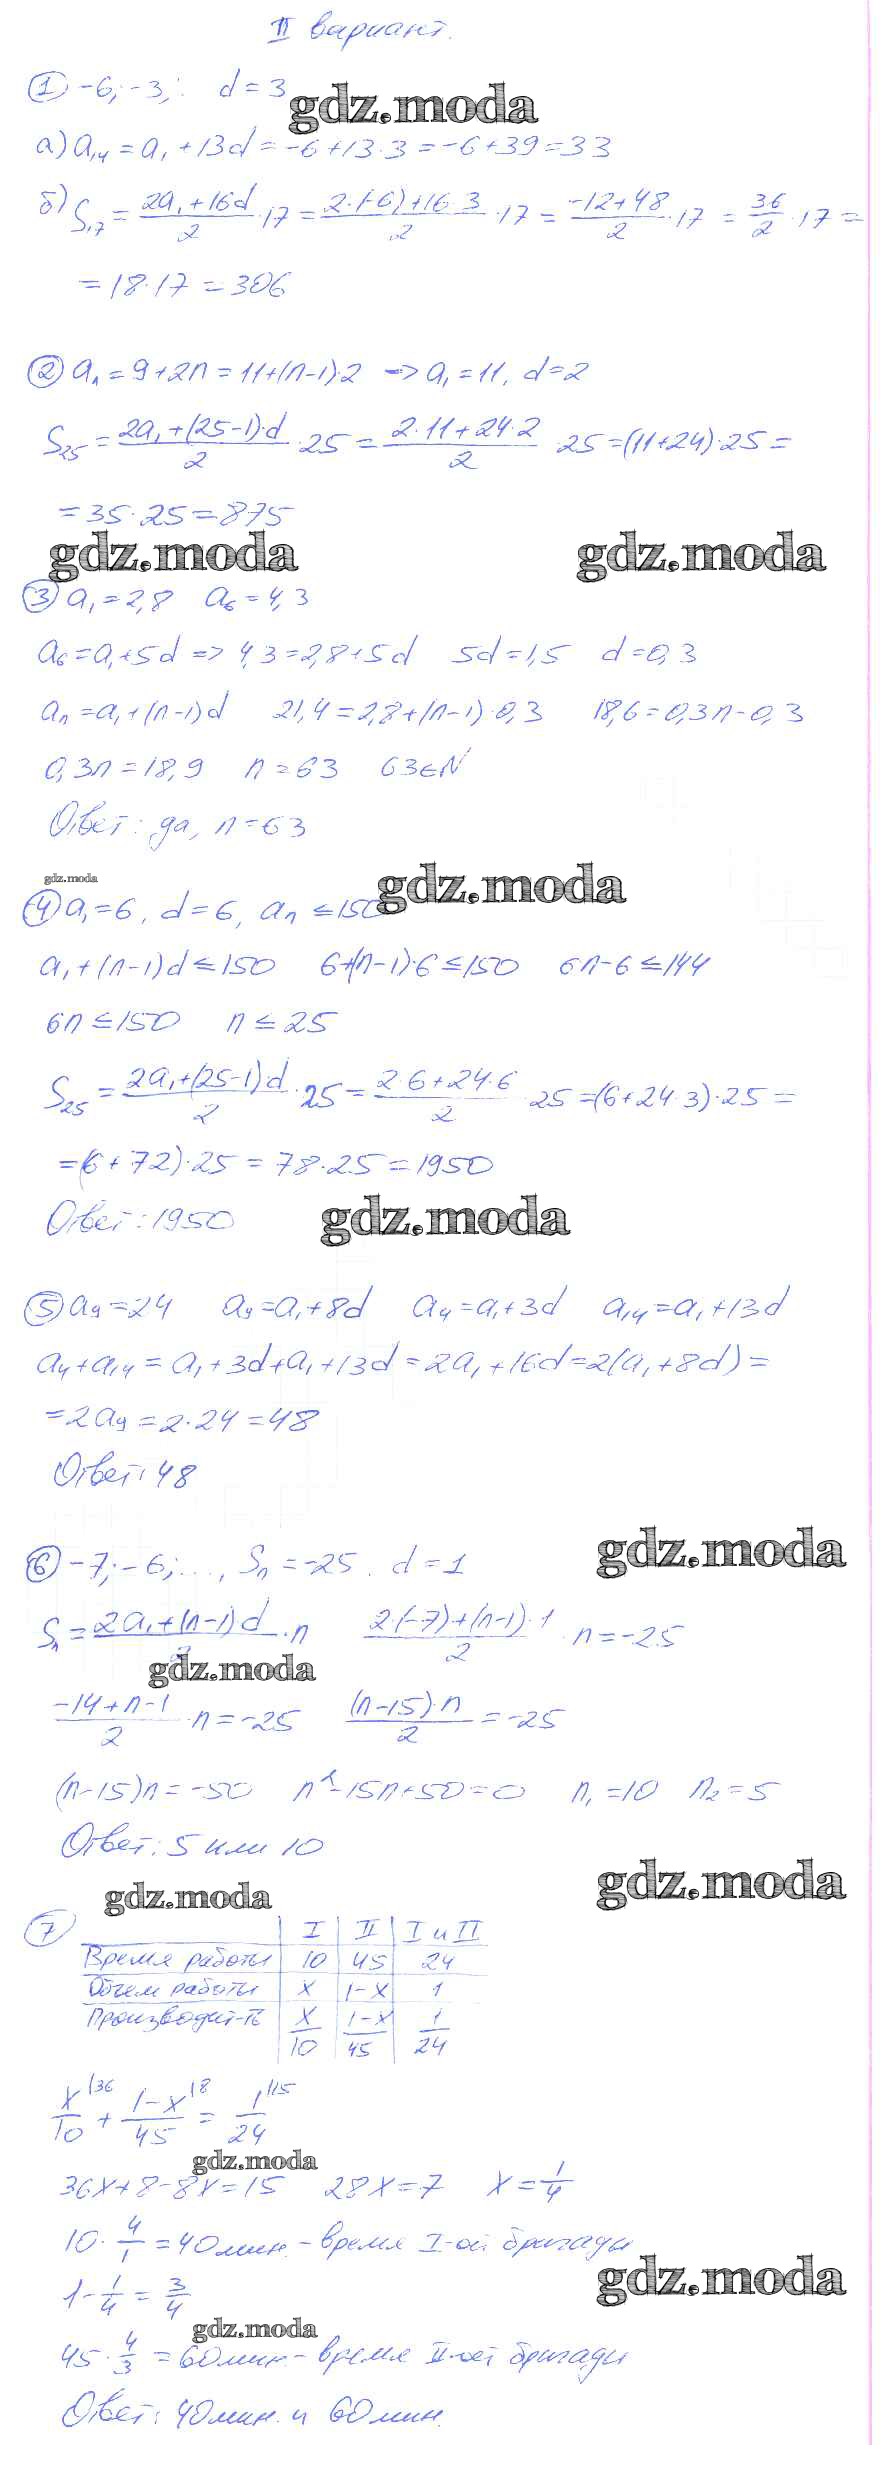 II вариант.
① -6; -3; d = 3
gdz.moda
а) a₁₄ = a₁ + 13d = -6 + 13·3 = -6 + 39 = 33
б) S₁₇ = (2a₁ + 16d)/2 · 17 = (2·(-6) + 16·3)/2 · 17 = (-12 + 48)/2 · 17 = 36/2 · 17 =
= 18·17 = 306
② aₙ = 9 + 2n = 11 + (n-1)·2 => a₁ = 11, d = 2
S₂₅ = (2a₁ + (25-1)·d)/2 · 25 = (2·11 + 24·2)/2 · 25 = (11 + 24)·25 =
= 35·25 = 875
gdz.moda gdz.moda
③ a₁ = 2,8 a₆ = 4,3
a₆ = a₁ + 5d => 4,3 = 2,8 + 5d 5d = 1,5 d = 0,3
aₙ = a₁ + (n-1)d 21,4 = 2,8 + (n-1)·0,3 18,6 = 0,3n - 0,3
0,3n = 18,9 n = 63 63 ∈ N
Ответ: да, n = 63
gdz.moda gdz.moda
④ a₁ = 6, d = 6, aₙ ≤ 150
a₁ + (n-1)d ≤ 150 6 + (n-1)·6 ≤ 150 6n - 6 ≤ 144
6n ≤ 150 n ≤ 25
S₂₅ = (2a₁ + (25-1)d)/2 · 25 = (2·6 + 24·6)/2 · 25 = (6 + 24·3)·25 =
= (6 + 72)·25 = 78·25 = 1950
Ответ: 1950 gdz.moda
⑤ a₉ = 24 a₉ = a₁ + 8d a₄ = a₁ + 3d a₁₄ = a₁ + 13d
a₄ + a₁₄ = a₁ + 3d + a₁ + 13d = 2a₁ + 16d = 2(a₁ + 8d) =
= 2a₉ = 2·24 = 48
Ответ: 48
gdz.moda
⑥ -7; -6; ..., Sₙ = -25. d = 1
Sₙ = (2a₁ + (n-1)d)/2 · n (2·(-7) + (n-1)·1)/2 · n = -25
gdz.moda
(-14 + n - 1)/2 · n = -25 ((n-15)·n)/2 = -25
(n-15)n = -50 n² - 15n + 50 = 0 n₁ = 10 n₂ = 5
Ответ: 5 или 10
gdz.moda gdz.moda
⑦ I II I и II
Время работы 10 45 24
Объем работы x 1-x 1
Производит-ть x/10 (1-x)/45 1/24
x/10 |36 + (1-x)/45 |8 = 1/24 |15
gdz.moda
36x + 8 - 8x = 15 28x = 7 x = 1/4
10 · 4/1 = 40 мин. - время I-ой бригады
gdz.moda
1 - 1/4 = 3/4
gdz.moda
45 · 4/3 = 60 мин. - время II-ой бригады
Ответ: 40 мин. и 60 мин.